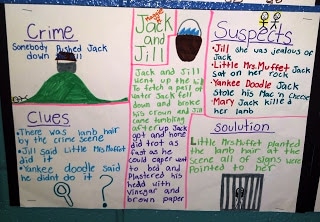 Crime
Somebody Pushed Jack
down
Clues
• There was lamb hair
by the crime scene
• Jill said Little Mrs Muffet
did it
• Yankee doodle said
he didnt do it
Jack
and
Jill
Jack and Jill
went up the hill
To fetch a pail of
water Jack fell
down and broke
his crown and Jill
came tumbling
after up Jack
got and home
did trot as
fast as he
could caper went
to bed and
Plastered his
hedd with
Vinegar and
brown paper
Suspects
• Jill she was jealous of
Jack
• Little Mrs. Muffet Jack
sat on her rock
• Yankee Doodle Jack
stole his Mac n cheese
• Mary Jack killed
her lamb
soulution
Little Mrs Muffet planted
the lamb hair at the
scene all of signs were
Pointed to her